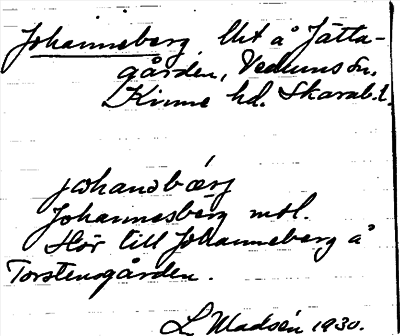 Johanneberg, lht å Jätta-
gården, Vedums sn.
Kinne hd. Skarab. l.
johansbærj
Johannesberg mtl.
Hör till Johanneberg å
Torstensgården.
L. Madsén 1930.